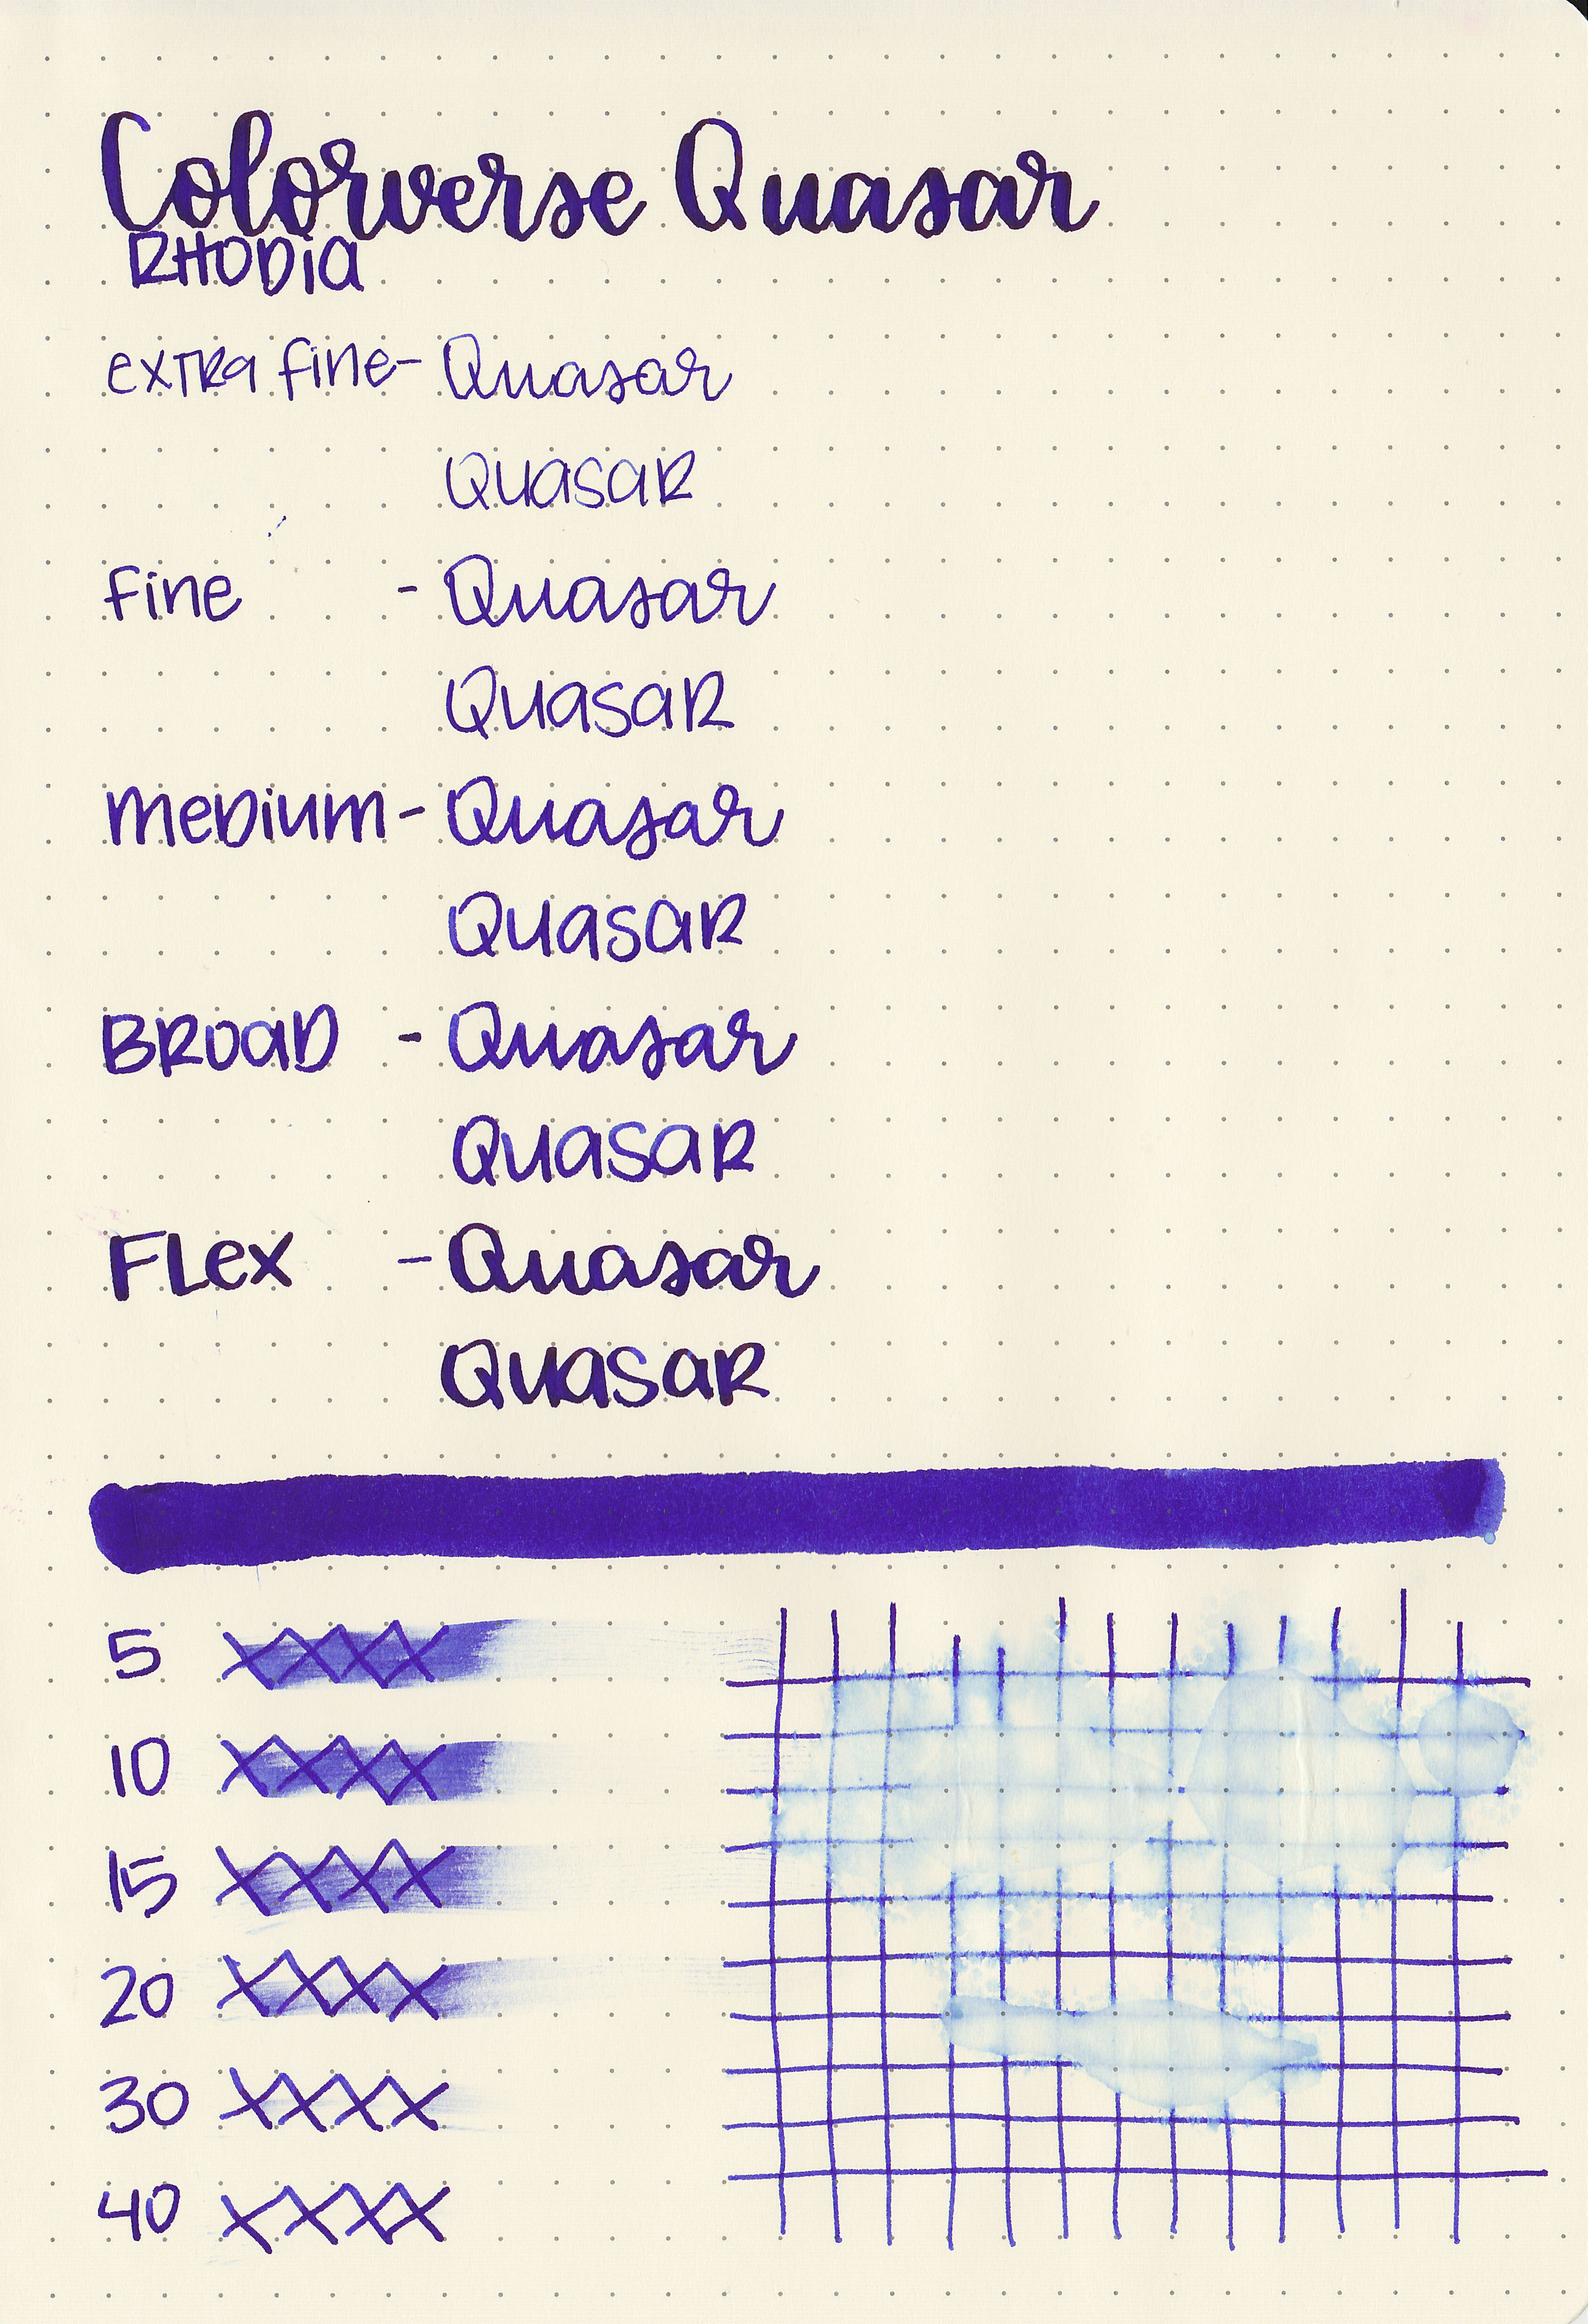 Colorverse Quasar
RHODia
exTRa fine- Quasar
QuasaR
fine - Quasar
QuasaR
meDium- Quasar
QuasaR
BRoaD - Quasar
QuasaR
FLex - Quasar
QuasaR
5 XXXX
10 XXXX
15 XXXX
20 XXXX
30 XXXX
40 XXXX